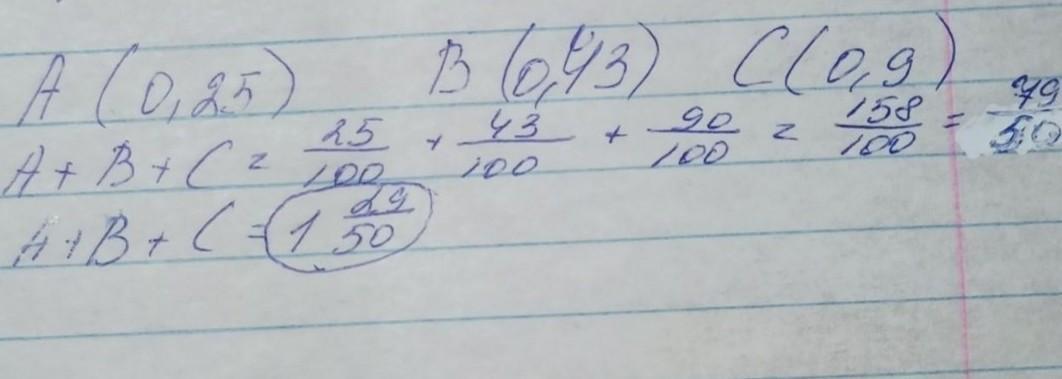 A (0,25) B (0,43) C (0,9)
A + B + C = 25/100 + 43/100 + 90/100 = 158/100 = 79/50
A + B + C = 1 29/50